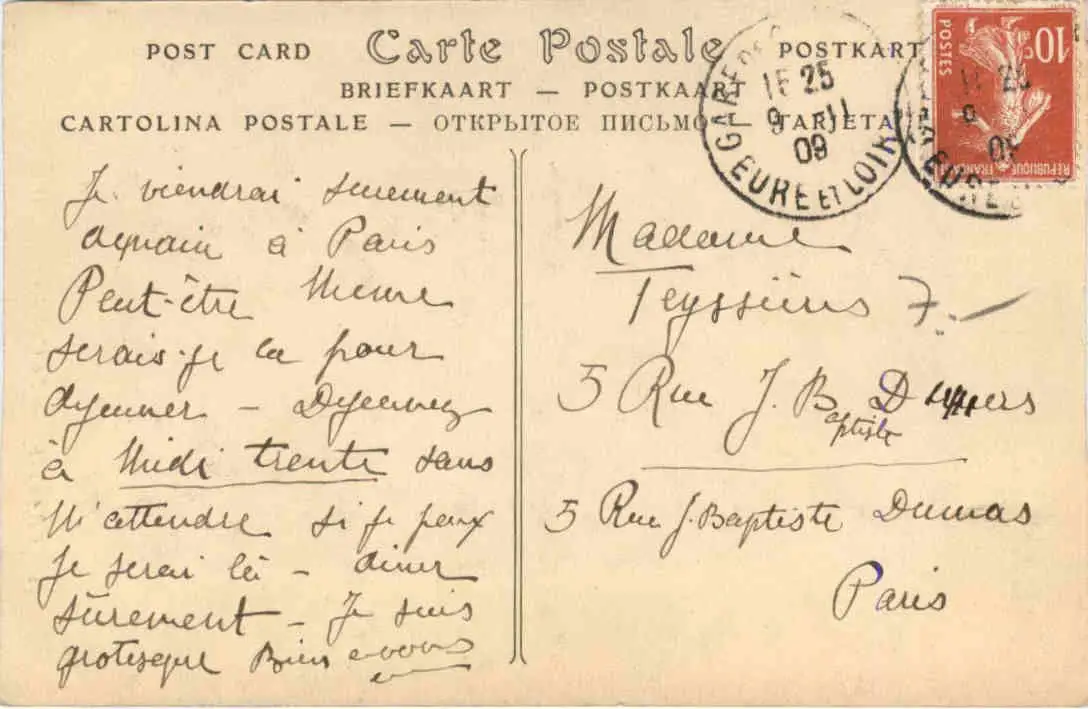 POST CARD Carte Postale POSTKART
BRIEFKAART — POSTKAART
CARTOLINA POSTALE — ОТКРЫТОЕ ПИСЬМО — TARJETA
GARE DE
15 25
9 - 11
09
EURE ET LOIR
10c
POSTES
REPUBLIQUE FRANÇAISE
Je viendrai surement
demain à Paris
Peut-être Meme
serais-je la pour
dejeuner – Dejeunez
à Midi trente sans
M'attendre si je peux
Je serai là – diner
sûrement – Je suis
grotesque Bien a vous
Madame
Teyssières
5 Rue J. Baptiste
5 Rue J. Baptiste Dumas
Paris